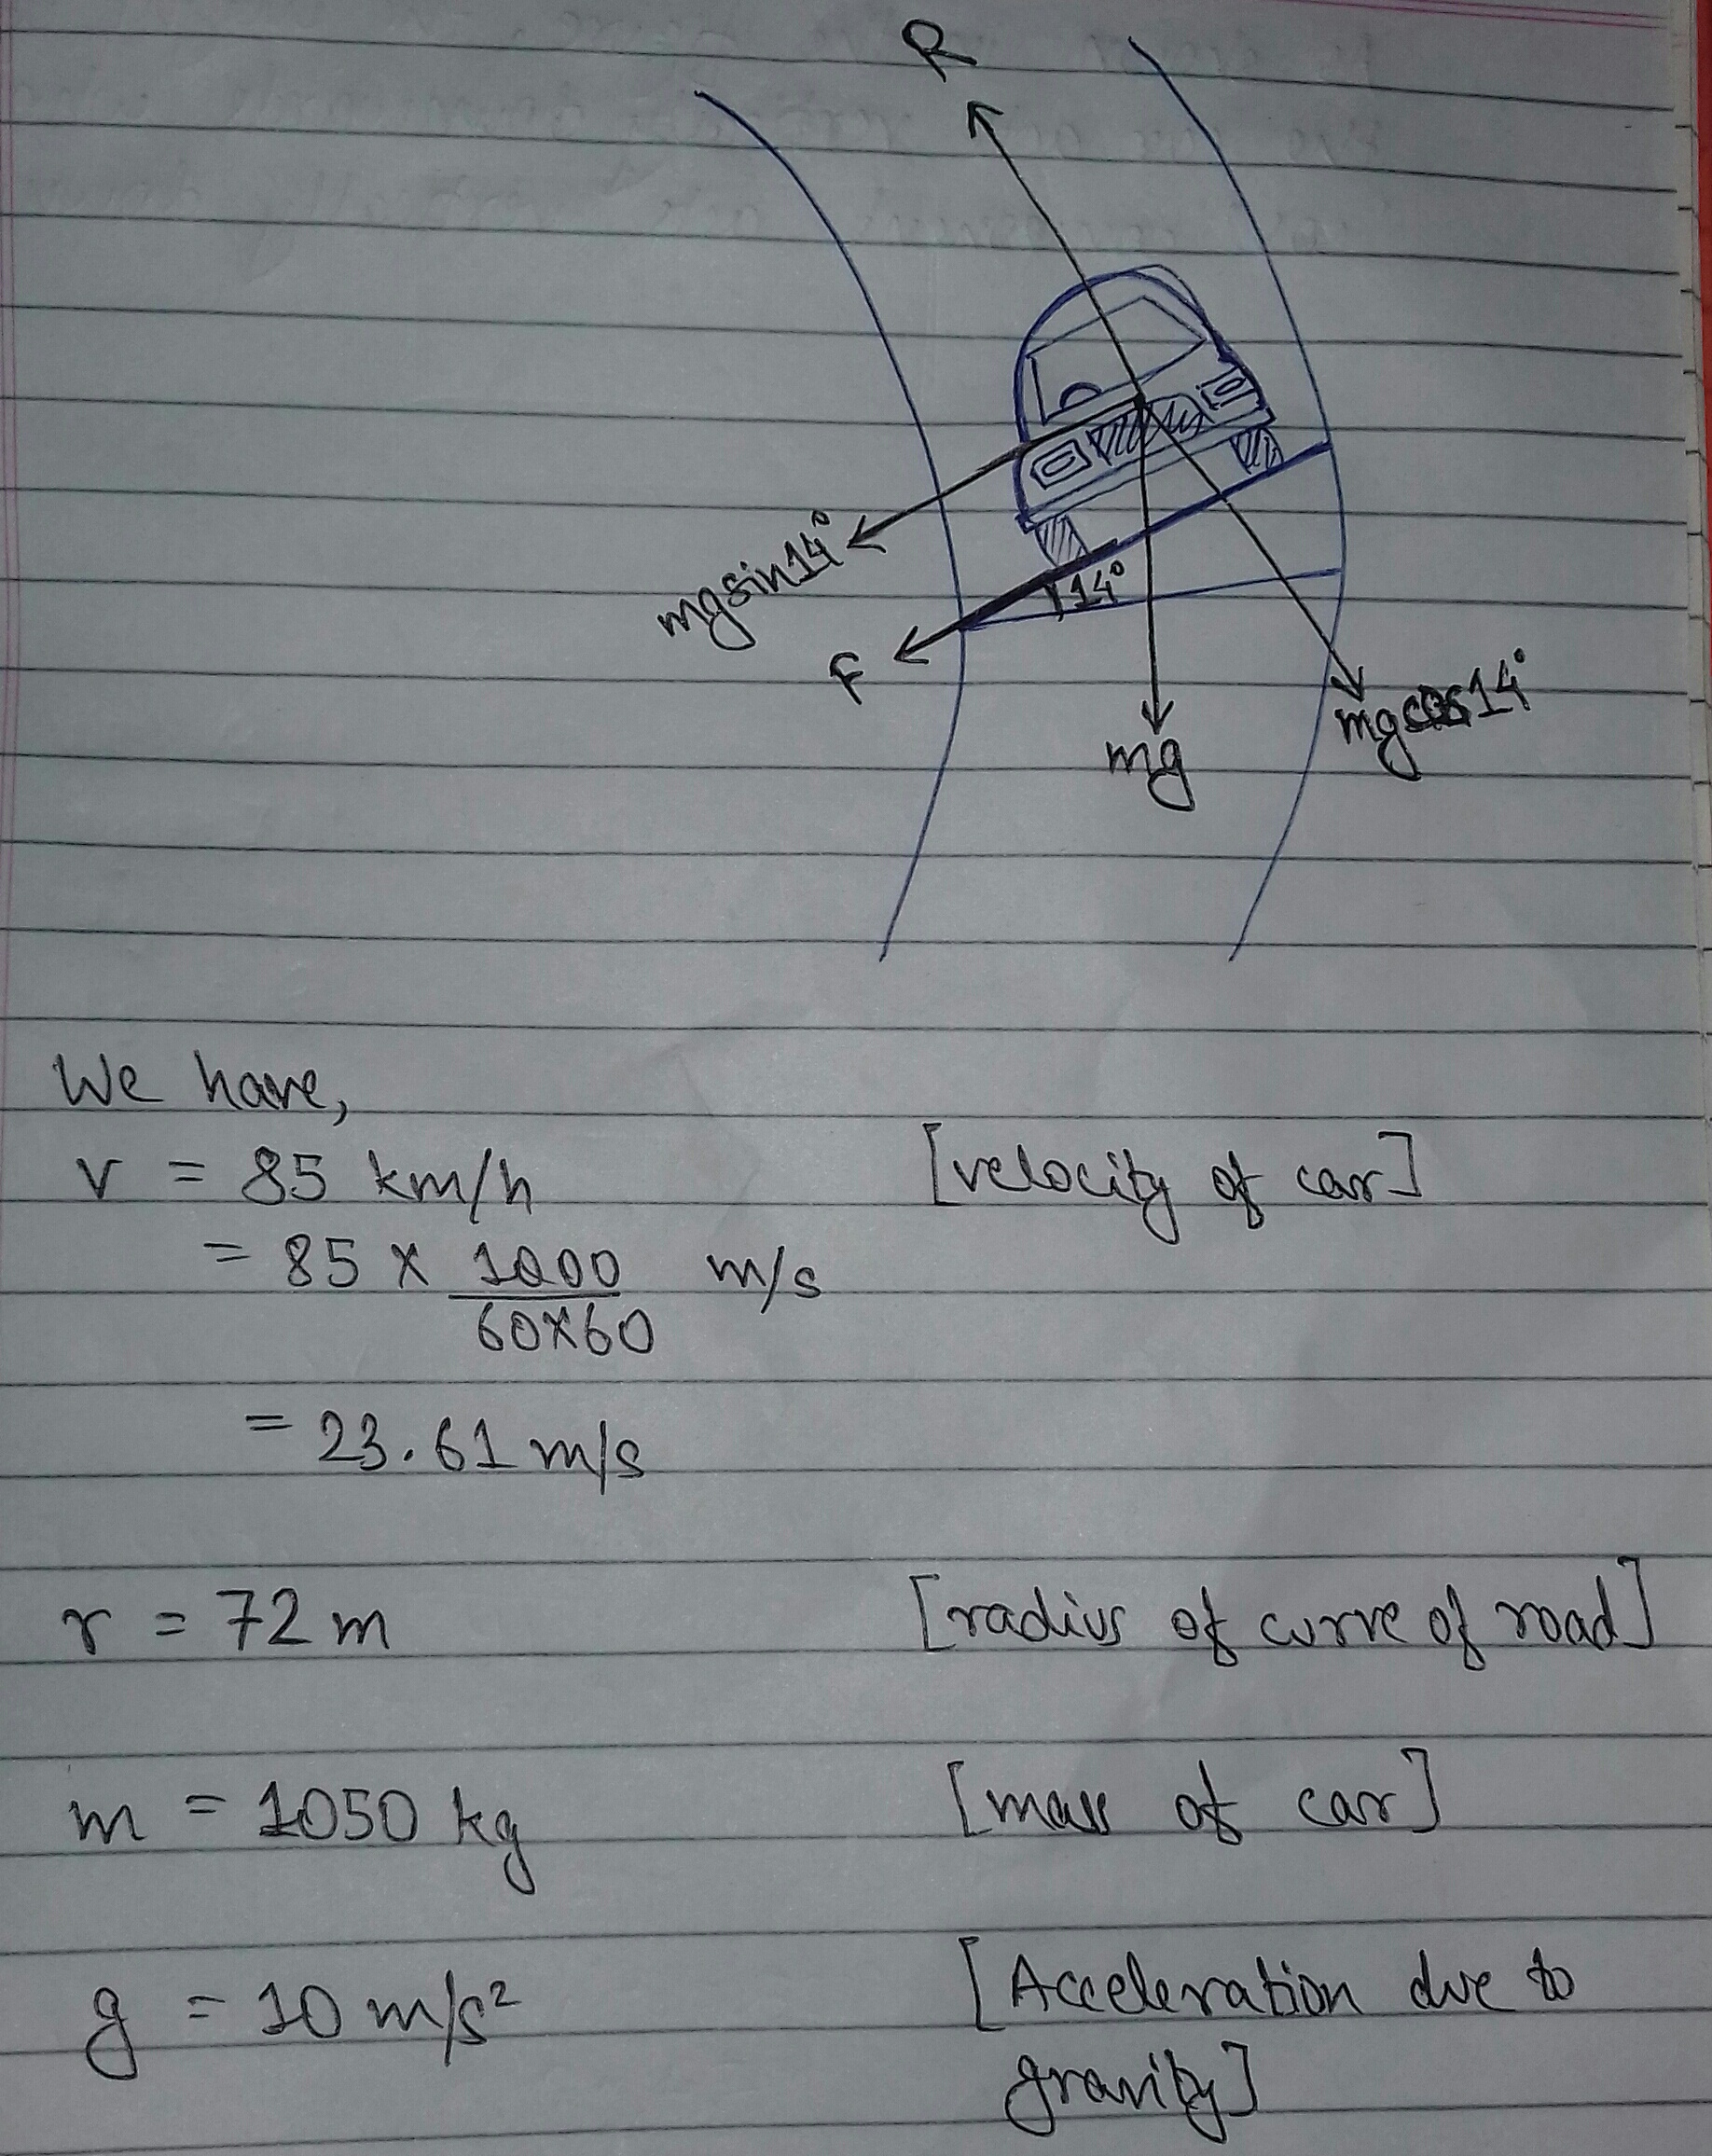 R
mgsin14°
14°
F
mg
mgcos14°
We have,
v = 85 km/h [velocity of car]
= 85 x 1000 m/s
60x60
= 23.61 m/s
r = 72 m [radius of curve of road]
m = 1050 kg [mass of car]
g = 10 m/s² [Acceleration due to
gravity]